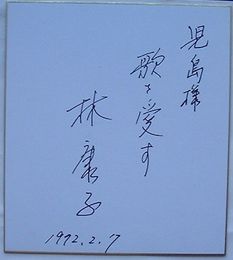 児島様
歌を愛す
林康子
1992.2.17